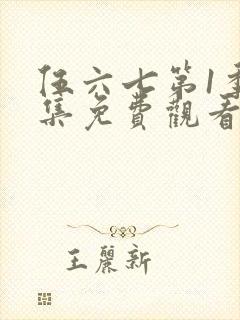 伍六七第1季
集免費觀看
王麗新